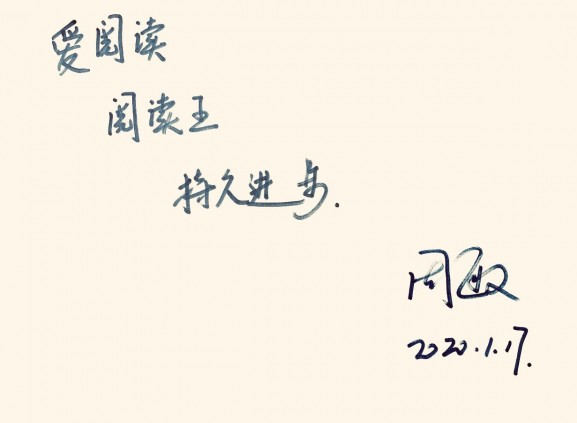 爱阅读
阅读王
持久进步.
周政
2020.1.17.